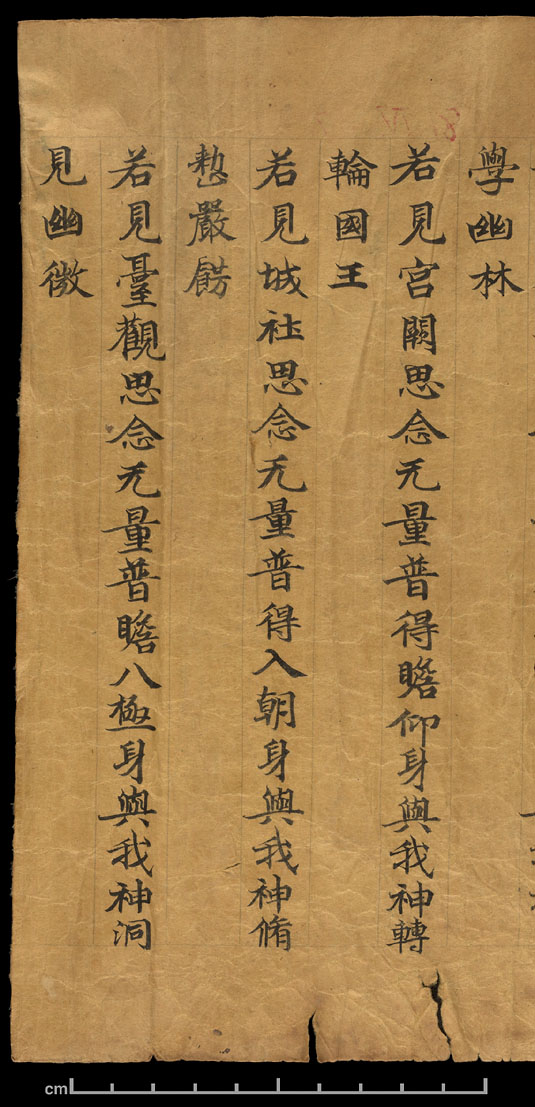 學幽林
若見宮闕思念无量普得瞻仰身與我神轉
輪國王
若見城社思念无量普得入朝身與我神脩
嚴餝
若見臺觀思念无量普瞻八極身與我神洞
見幽微
cm